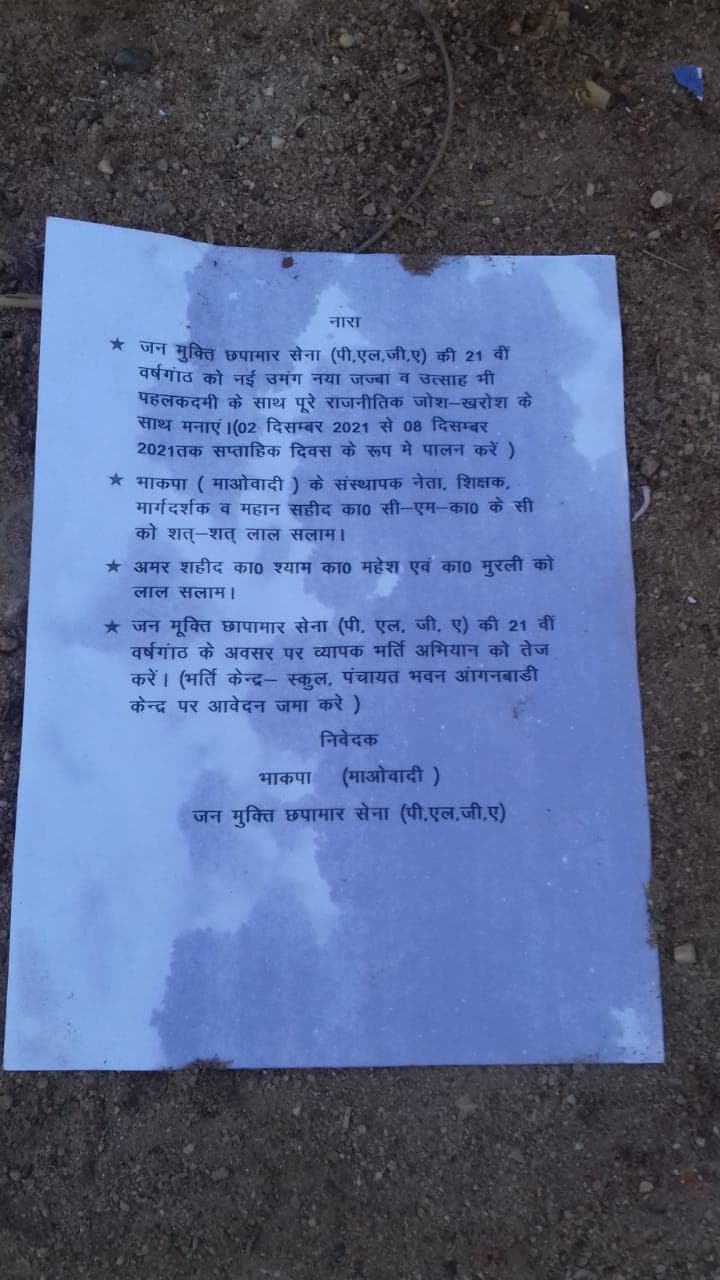 नारा
★ जन मुक्ति छपामार सेना (पी,एल,जी,ए) की 21 वीं
वर्षगांठ को नई उमंग नया जज्बा व उत्साह भी
पहलकदमी के साथ पूरे राजनीतिक जोश–खरोश के
साथ मनाएं।(02 दिसम्बर 2021 से 08 दिसम्बर
2021तक सप्ताहिक दिवस के रूप मे पालन करें )
★ भाकपा ( माओवादी ) के संस्थापक नेता, शिक्षक,
मार्गदर्शक व महान सहीद का0 सी–एम–का0 के सी
को शत्–शत् लाल सलाम।
★ अमर शहीद का0 श्याम का0 महेश एवं का0 मुरली को
लाल सलाम।
★ जन मूक्ति छापामार सेना (पी, एल, जी, ए) की 21 वीं
वर्षगांठ के अवसर पर व्यापक भर्ति अभियान को तेज
करें। (भर्ति केन्द्र– स्कुल, पंचायत भवन आंगनबाडी
केन्द्र पर आवेदन जमा करे )
निवेदक
भाकपा (माओवादी )
जन मुक्ति छपामार सेना (पी,एल,जी,ए)